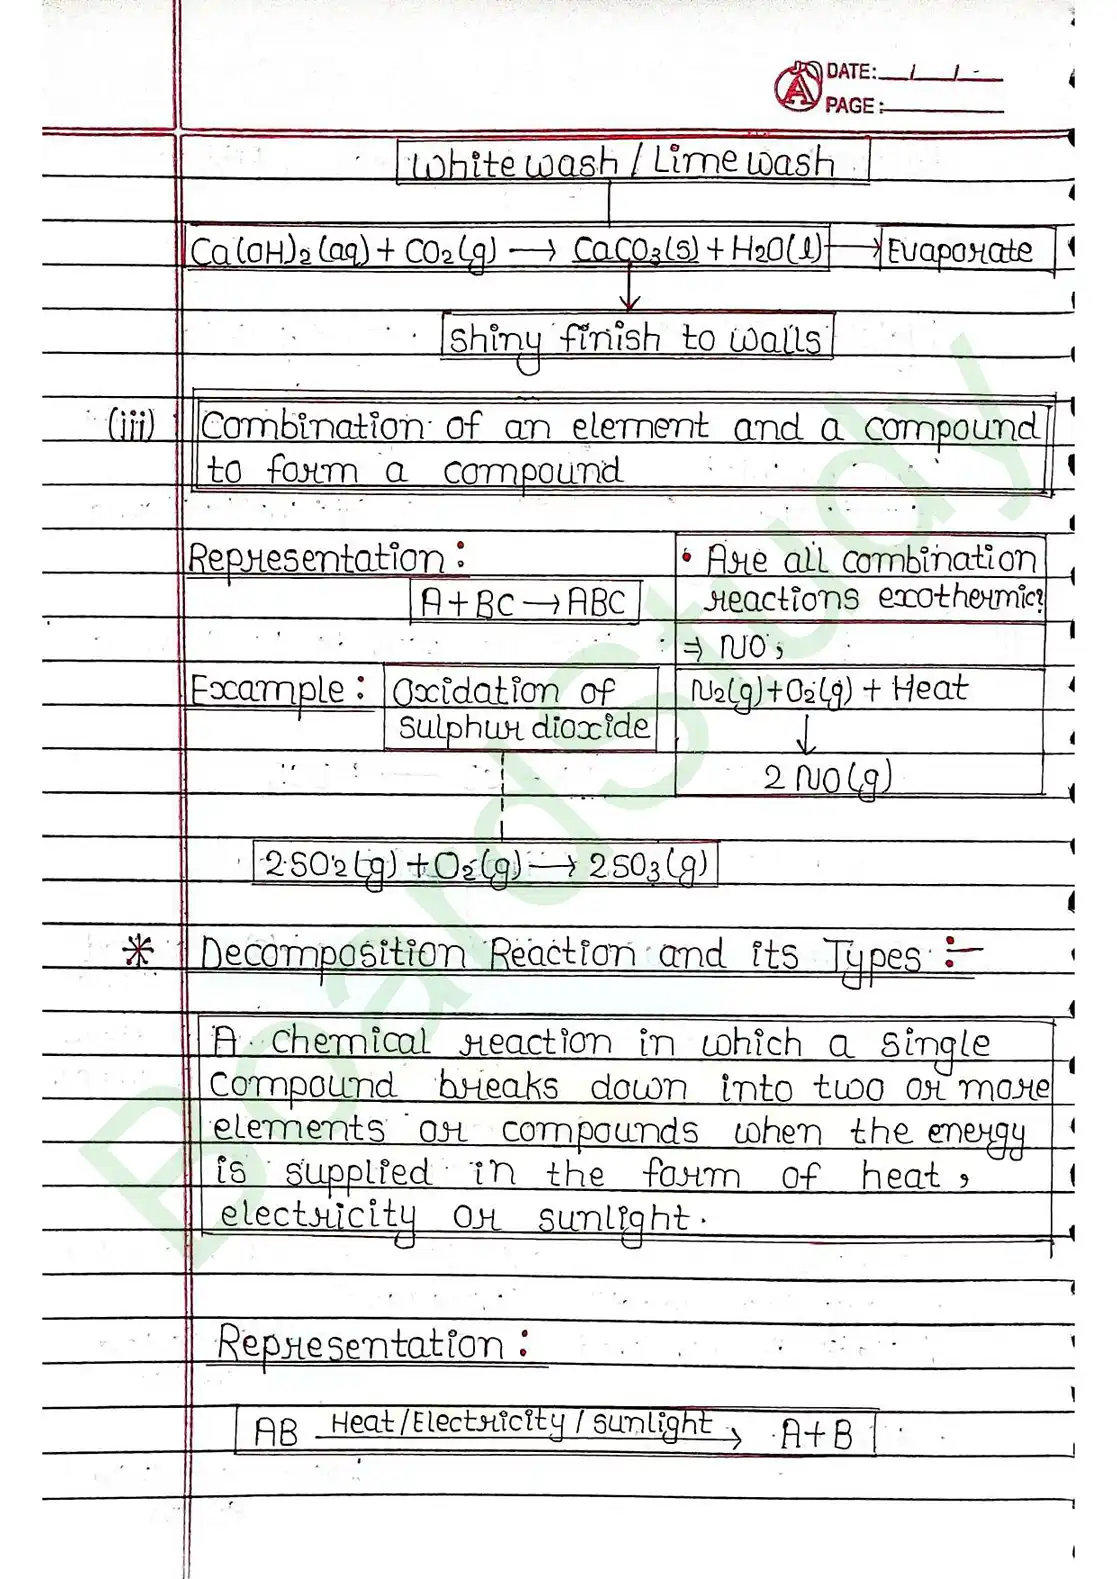 DATE: / / -
PAGE:
White wash / Lime wash
Ca(OH)2(aq) + CO2(g) → CaCO3(s) + H2O(l) → Evaporate
Shiny finish to walls
(iii) Combination of an element and a compound
to form a compound
Representation:
A + BC → ABC
• Are all combination
reactions exothermic?
⇒ NO,
N2(g) + O2(g) + Heat
↓
2 NO(g)
Example: Oxidation of
sulphur dioxide
2SO2(g) + O2(g) → 2SO3(g)
* Decomposition Reaction and its Types :-
A chemical reaction in which a single
compound breaks down into two or more
elements or compounds when the energy
is supplied in the form of heat,
electricity or sunlight.
Representation:
AB Heat/Electricity/sunlight → A+B
BoardStudy